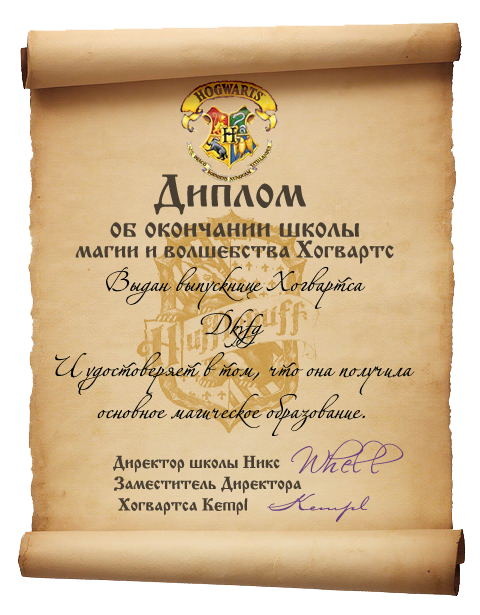 HOGWARTS
H
Диплом
об окончании школы
магии и волшебства Хогвартс
Выдан выпускнице Хогвартса
Hufflepuff
И удостоверяет в том, что она получила
основное магическое образование.
Директор школы Никс Whell
Заместитель Директора
Хогвартса Kempl Kempl